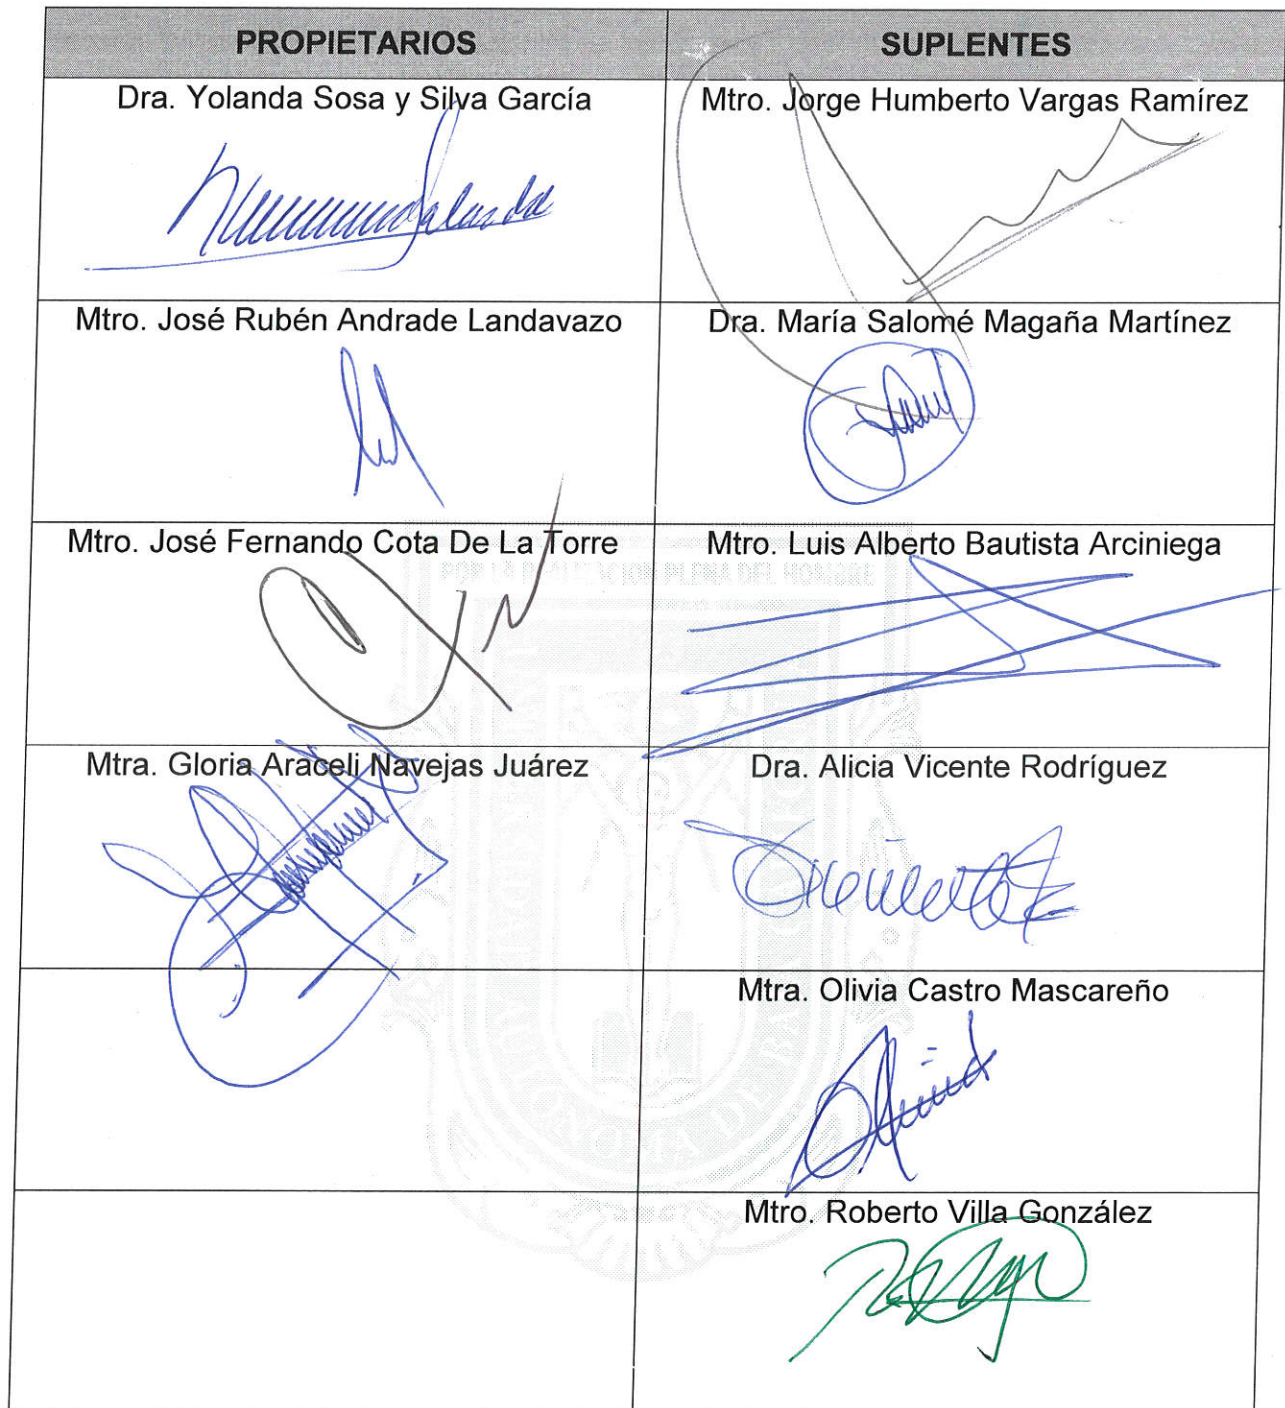 PROPIETARIOS SUPLENTES
Dra. Yolanda Sosa y Silva García Mtro. Jorge Humberto Vargas Ramírez
Mtro. José Rubén Andrade Landavazo Dra. María Salomé Magaña Martínez
Mtro. José Fernando Cota De La Torre Mtro. Luis Alberto Bautista Arciniega
POR LA REALIZACION PLENA DEL HOMBRE
Mtra. Gloria Araceli Navejas Juárez Dra. Alicia Vicente Rodríguez
Mtra. Olivia Castro Mascareño
Mtro. Roberto Villa González